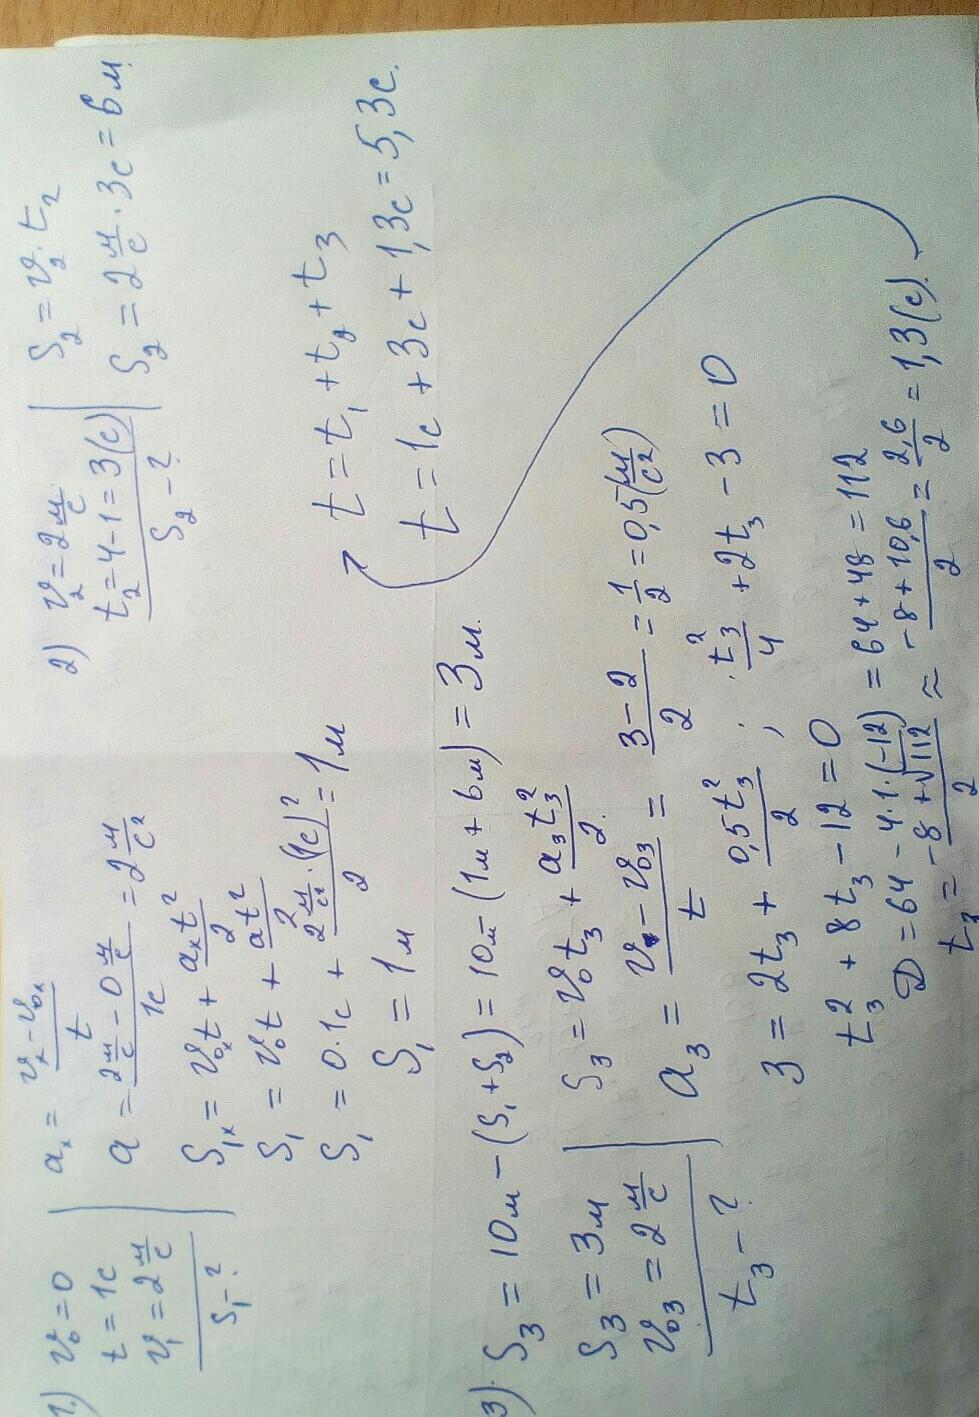 1.) v₀ = 0
t = 1с
v₁ = 2 м/с
S₁ - ?
aₓ = (vₓ - v₀ₓ)/t
a = (2 м/с - 0 м/с)/1с = 2 м/с²
S₁ₓ = v₀ₓt + aₓt²/2
S₁ = v₀t + at²/2
S₁ = 0·1с + (2 м/с²·(1с)²)/2 = 1м
S₁ = 1м
2) v₂ = 2 м/с
t₂ = 4-1 = 3(с)
S₂ - ?
S₂ = v₂·t₂
S₂ = 2 м/с · 3с = 6м
3) S₃ = 10м - (S₁ + S₂) = 10м - (1м + 6м) = 3м.
S₃ = 3м
v₀₃ = 2 м/с
t₃ - ?
S₃ = v₀t₃ + a₃t₃²/2.
a₃ = (v - v₀₃)/t = (3-2)/2 = 1/2 = 0,5(м/с²)
3 = 2t₃ + 0,5t₃²/2 ; t₃²/4 + 2t₃ - 3 = 0
t₃² + 8t₃ - 12 = 0
D = 64 - 4·1·(-12) = 64 + 48 = 112
t₃ = (-8 + √112)/2 ≈ (-8 + 10,6)/2 = 2,6/2 = 1,3(с).
t = t₁ + t₂ + t₃
t = 1с + 3с + 1,3с = 5,3с.